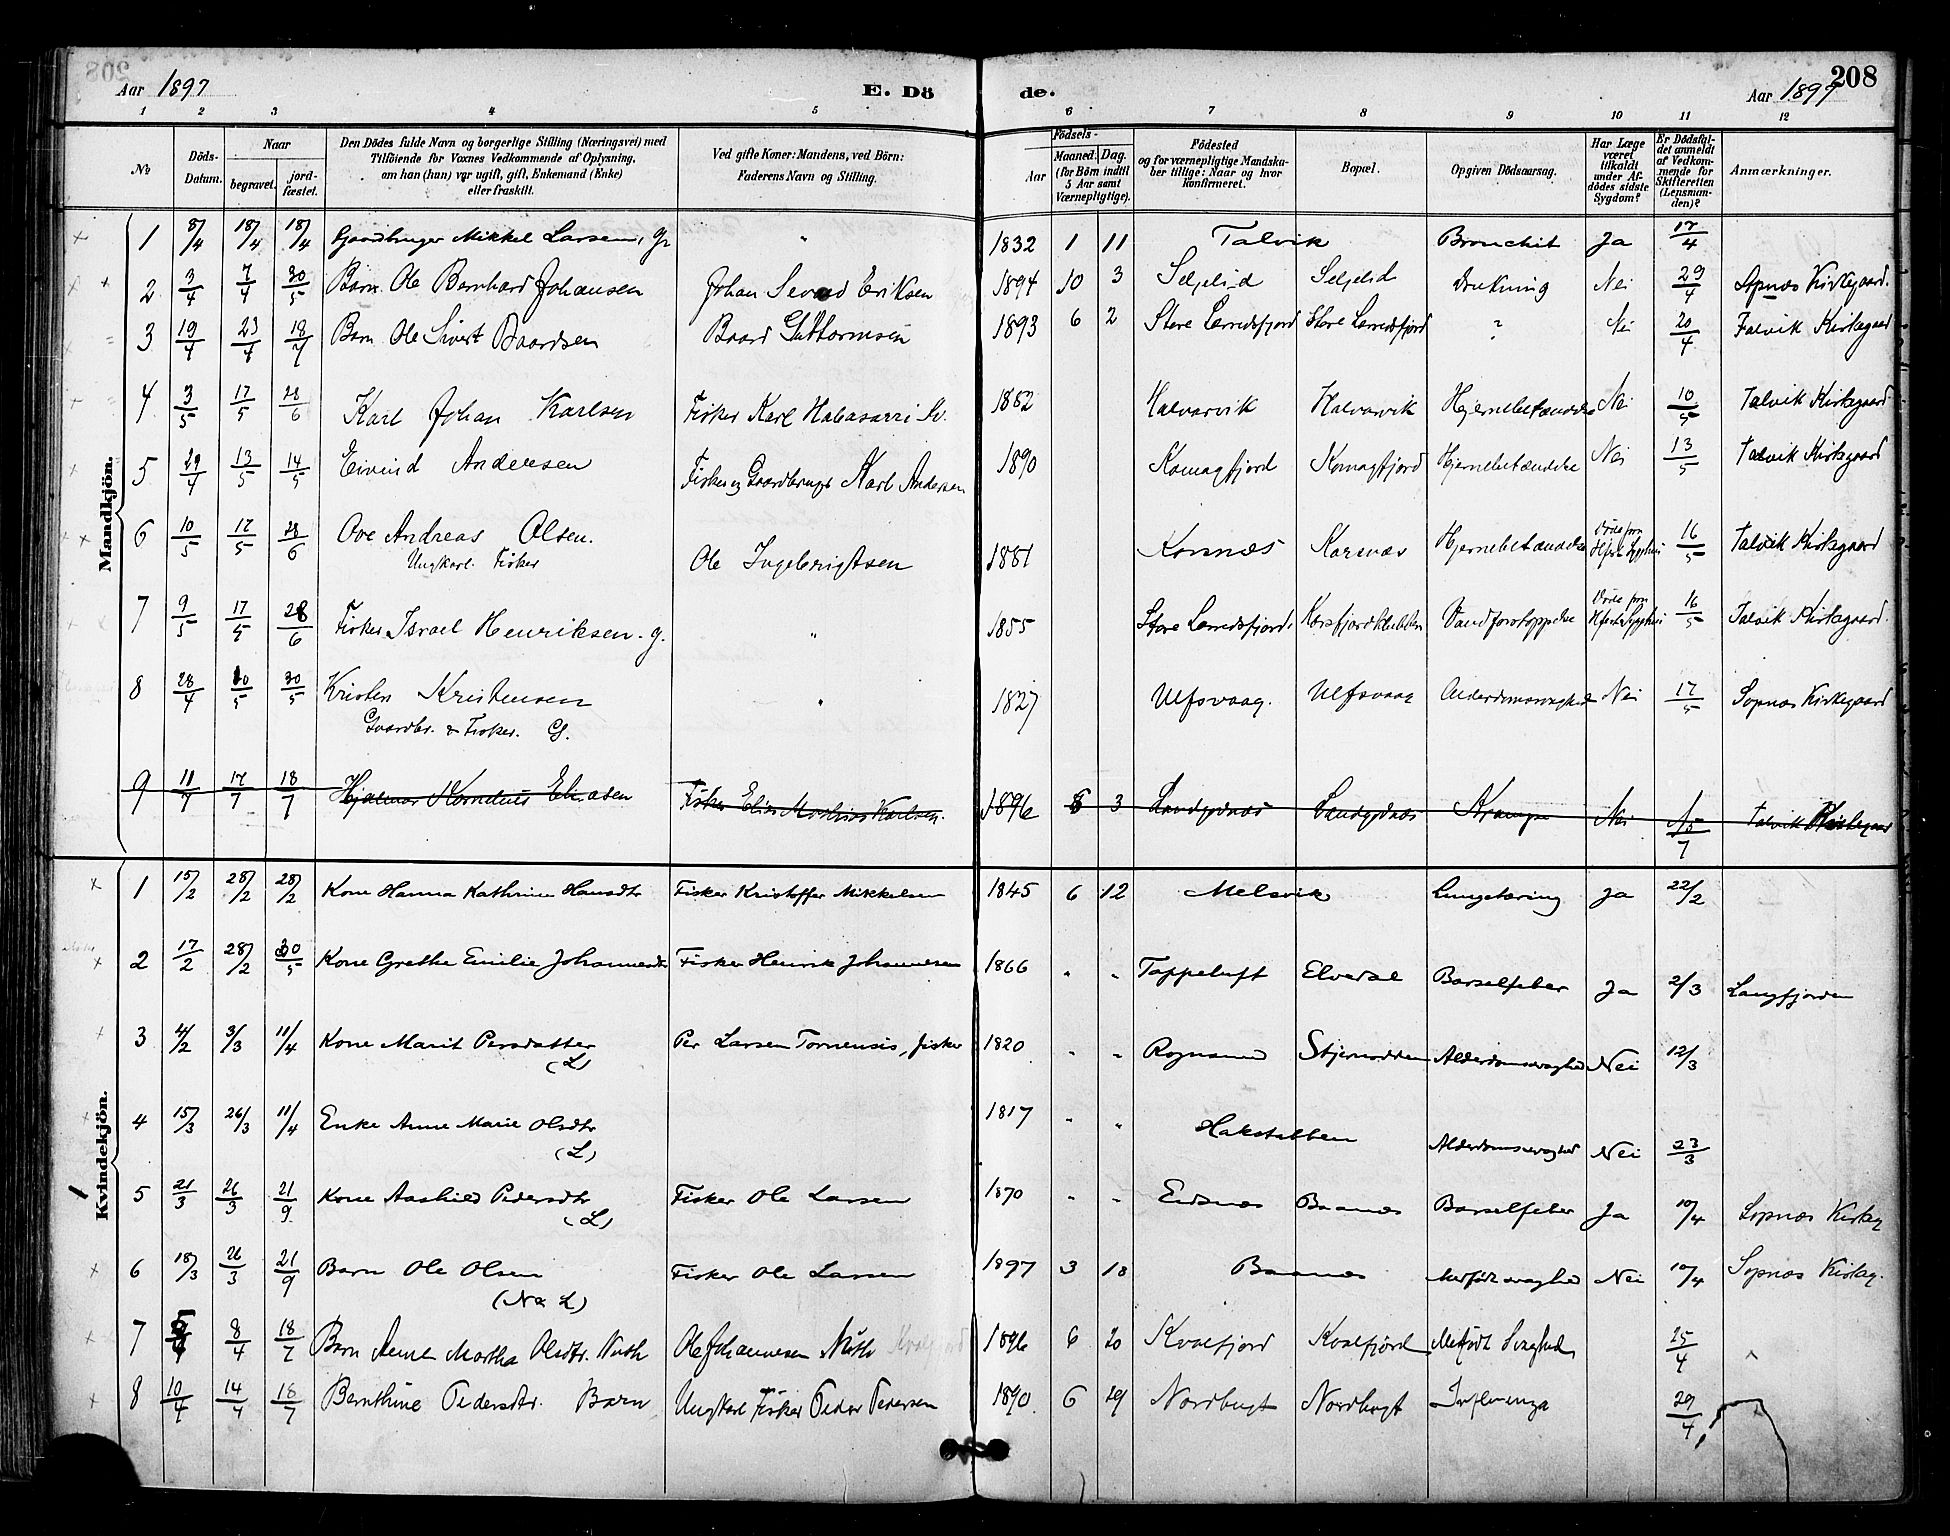 208
Aar 1897
E. Dö
de.
Aar 1897
208
1 2 3 4 5 6 7 8 9 10 11 12
№
Döds-Datum.
Naar
begravet.
jord-fæstet.
Den Dödes fulde Navn og borgerlige Stilling (Næringsvei) med
Tilföiende for Voxnes Vedkommende af Oplysning,
om han (hun) var ugift, gift, Enkemand (Enke)
eller fraskilt.
Ved gifte Koner: Mandens, ved Börn:
Faderens Navn og Stilling.
Födsels-
Aar
Maaned. Dag.
(for Börn indtil
5 Aar samt
Værnepligtige).
Födested
og for værnepligtige Mandska-
ber tillige: Naar og hvor
konfirmeret.
Bopæl.
Opgiven Dödsaarsag.
Har Læge
været
tilkaldt
under Af-
dödes sidste
Sygdom?
Er Dödsfal-
det anmeldt
af Vedkom-
mende for
Skifteretten
(Lensman-
den)?
Anmærkninger.
Mandkjön.
1 8/4 18/4 18/4 Gaardbruger Mikkel Larsen, g. " 1832 1 11 Talvik Bronchit Ja 17/4
2 3/4 7/4 30/5 Barn Ole Bernhard Johansen Johan Eriksen 1894 10 3 Seljelid Seljelid Drukning Nei 29/4 Sopnæs Kirkegaard.
3 19/4 23/4 18/7 Barn Ole Sivert Baardsen Baard Guttormsen 1893 6 2 Store Lerredsfjord Store Lerredsfjord " Nei 20/4 Talvik Kirkegaard
4 3/5 17/5 28/6 Karl Johan Karlsen Fisker Karl 1882 Halvarvik Halvarvik Hjernebetændelse Nei 10/5 Talvik Kirkegaard
5 29/4 13/5 14/5 Eivind Andersen Fisker og Gaardbruger Karl Andersen 1890 Komagfjord Komagfjord Hjernebetændelse Nei 13/5 Talvik Kirkegaard
6 10/5 17/5 28/6 Ove Andreas Olsen.
Ungkarl. Fisker Ole Ingebrigtsen 1881 Korsnæs Korsnæs Hjernebetændelse 16/5 Talvik Kirkegaard
7 9/5 17/5 28/6 Fisker Israel Henriksen. g. " 1855 Store Lerredsfjord Korsfjord 16/5 Talvik Kirkegaard.
8 28/4 30/5 30/5 Kristen Kristensen
Gaardbr. & Fisker. G. " 1827 Ulfsvaag. Ulfsvaag Alderdomssvaghed Nei 17/5 Sopnæs Kirkegaard
9 11/7 17/7 18/7 Hjalmar Kornelius Eliasen Fisker Elias Mathias Karlsen. 1896 3 Krampe Nei 15/7 Talvik Kirkegaard
Kvindekjön.
1 15/2 28/2 28/2 Kone Hanna Kathrine Hansdtr Fisker Kristoffer Mikkelsen 1845 6 12 Melsvik Lungetæring Ja 22/2
2 17/2 28/2 30/5 Kone Grethe Emilie Johannesdtr Fisker Henrik Johannesen 1866 " " Tappeluft Elvedal Barselfeber Ja 2/3 Langfjorden
3 4/2 3/3 11/4 Kone Marit Persdatter
(L) Per Larsen Tornensis, fisker 1820 " " Rognsund Stjernodden Alderdomssvaghed Nei 12/3
4 15/3 26/3 11/4 Enke Anne Marie Olsdtr
(L) 1817 " " Hakstabben Alderdomssvaghed Nei 23/3
5 21/3 26/3 21/9 Kone Aashild Pedersdtr
(L) Fisker Ole Larsen 1870 " " Eidsnæs Baanæs Barselfeber Ja 10/4 Sopnæs Kirkeg
6 18/3 26/3 21/9 Barn Ole Olsen
Fisker Ole Larsen 1897 3 18 Baanæs Medfödt svaghed Nei 10/4 Sopnæs Kirkeg.
7 8/4 18/7 Barn Anne Martha Olsdtr. Nuth Ole Johannesen Nuth Kvalfjord 1896 6 20 Kvalfjord Kvalfjord Medfödt Svaghed 25/4
8 10/4 14/4 18/7 Bernthine Pedersdtr. Barn Ungkarl Fisker Peder Pedersen 1890 6 19 Nordbugt Nordbugt Influenza 29/4